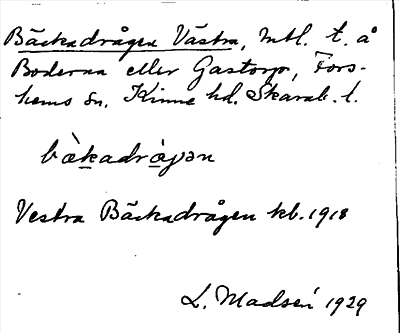 Bäckadrågen Västra, mtl. t. å
Boderna eller Gastorp, Fors-
hems sn, Kinne hd. Skarab. l.
bàkadràgən
Vestra Bäckadrågen kb. 1918
L. Madsén 1929